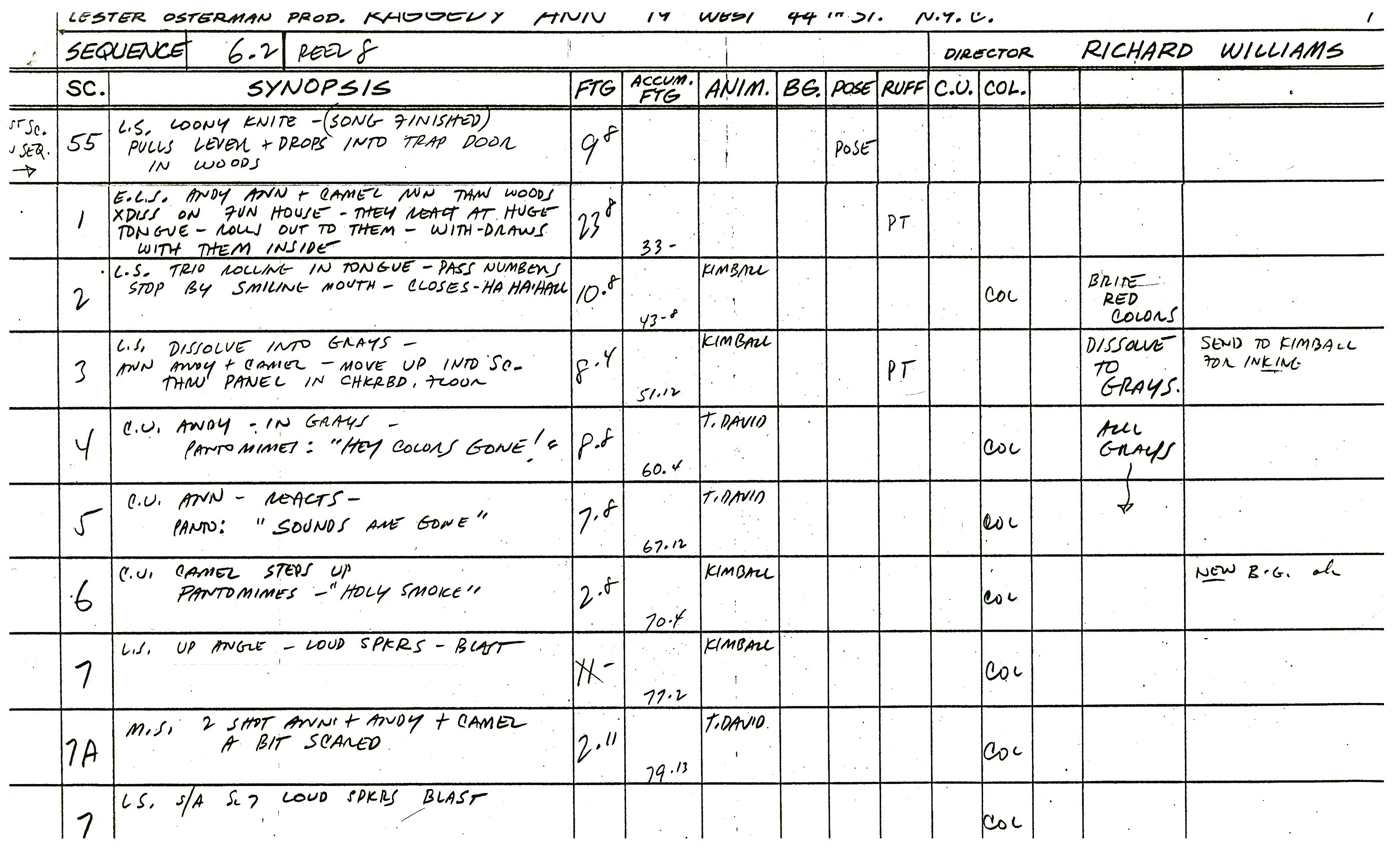 LESTER OSTERMAN PROD. RAGGEDY ANN 19 WEST 44TH ST. N.Y.C. 1
SEQUENCE 6.2 REEL 8 DIRECTOR RICHARD WILLIAMS
SC. SYNOPSIS FTG ACCUM. FTG ANIM. BG. POSE RUFF C.U. COL.
ST SC.
SEQ.
→
55
L.S. LOONY KNITE - (SONG FINISHED)
PULLS LEVER + DROPS INTO TRAP DOOR
IN WOODS
9 8
POSE
1
E.L.S. ANDY ANN + CAMEL RUN THRU WOODS
XDISS ON FUN HOUSE - THEY REACT AT HUGE
TONGUE - ROLLS OUT TO THEM - WITH-DRAWS
WITH THEM INSIDE
23 8
33 -
PT
2
L.S. TRIO ROLLING IN TONGUE - PASS NUMBERS
STOP BY SMILING MOUTH - CLOSES - HA HA HAU
10.8
43-8
KIMBALL
COL
BRITE
RED
COLORS
3
L.S. DISSOLVE INTO GRAYS -
ANN ANDY + CAMEL - MOVE UP INTO SC-
THRU PANEL IN CHKRBD. FLOOR
8.4
51.12
KIMBALL
PT
DISSOLVE
TO
GRAYS.
SEND TO KIMBALL
FOR INKING
4
C.U. ANDY - IN GRAYS -
PANTOMIMES: "HEY COLORS GONE!"
8.8
60.4
T. DAVID
COL
ALL
GRAYS
5
C.U. ANN - REACTS -
PANTO: "SOUNDS ARE GONE"
7.8
67.12
T. DAVID
COL
6
C.U. CAMEL STEPS UP
PANTOMIMES - "HOLY SMOKE"
2.8
70.4
KIMBALL
COL
NEW B.G. ok
7
L.S. UP ANGLE - LOUD SPKRS - BLAST
77.2
KIMBALL
COL
7A
M.S. 2 SHOT ANN + ANDY + CAMEL
A BIT SCARED
2.11
79.13
T. DAVID
COL
7
L.S. S/A SC 7 LOUD SPKRS BLAST
COL